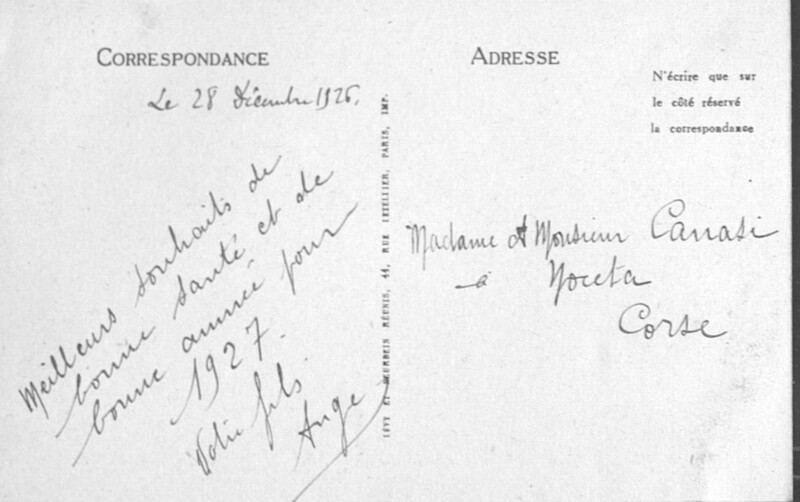 CORRESPONDANCE
Le 28 Décembre 1926.
Meilleurs souhaits de
bonne santé et de
bonne année pour
1927.
Votre fils
Ange
LÉVY ET NEURDEIN RÉUNIS, 44, RUE LETELLIER, PARIS, IMP.
ADRESSE
N'écrire que sur
le côté réservé
la correspondance
Madame et Monsieur Canasi
à
Corse